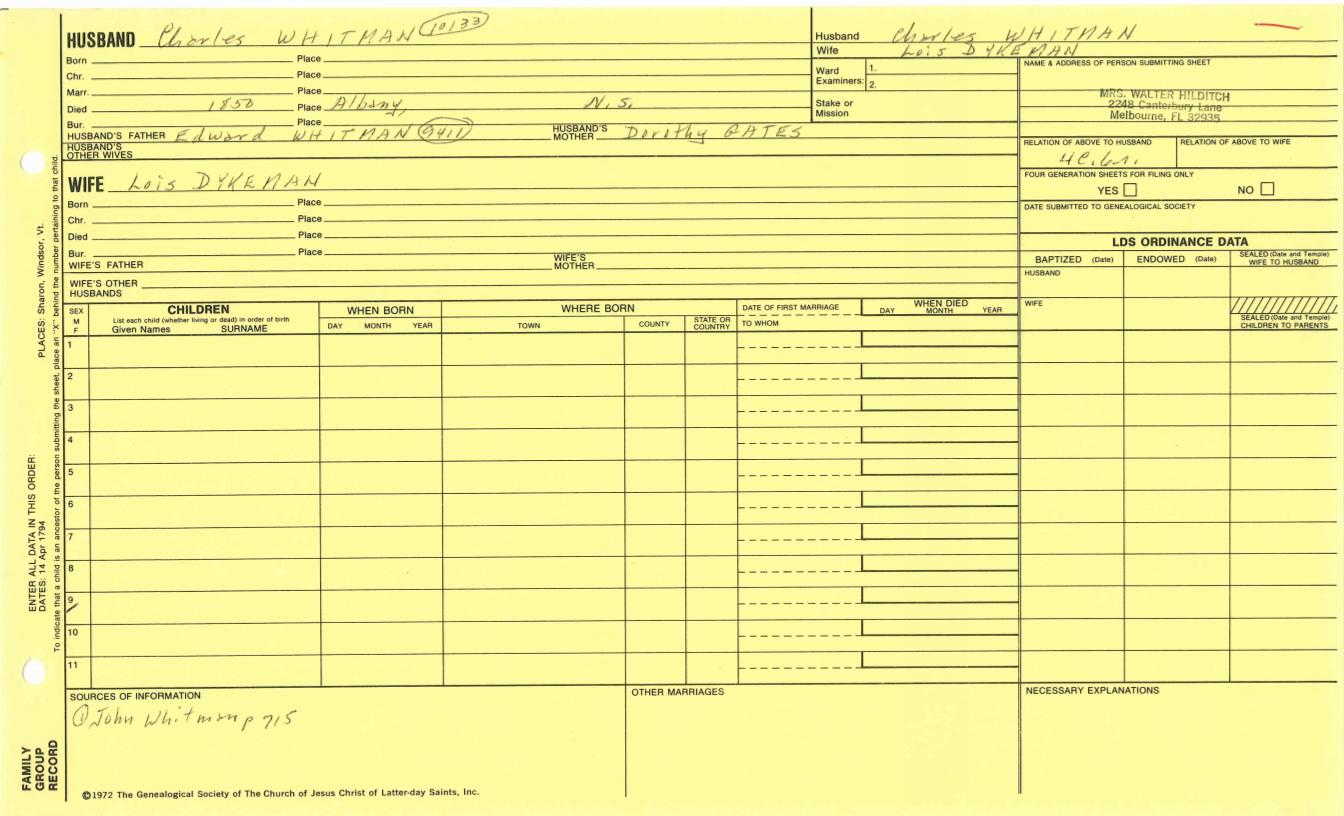 HUSBAND Charles WHITMAN 10133
Born Place
Chr. Place
Marr. Place
Died 1850 Place Albany, N.S.
Bur. Place
HUSBAND'S FATHER Edward WHITMAN 9411 HUSBAND'S MOTHER Dorothy GATES
HUSBAND'S OTHER WIVES
Husband Charles WHITMAN
Wife Lois DYKEMAN
Ward Examiners: 1. 2.
Stake or Mission
NAME & ADDRESS OF PERSON SUBMITTING SHEET
MRS. WALTER HILDITCH
2248 Canterbury Lane
Melbourne, FL 32935
RELATION OF ABOVE TO HUSBAND RELATION OF ABOVE TO WIFE
FOUR GENERATION SHEETS FOR FILING ONLY
YES NO
DATE SUBMITTED TO GENEALOGICAL SOCIETY
WIFE Lois DYKEMAN
Born Place
Chr. Place
Died Place
Bur. Place
WIFE'S FATHER WIFE'S MOTHER
WIFE'S OTHER HUSBANDS
LDS ORDINANCE DATA
BAPTIZED (Date) ENDOWED (Date) SEALED (Date and Temple) WIFE TO HUSBAND
HUSBAND
WIFE
SEALED (Date and Temple) CHILDREN TO PARENTS
SEX M F
CHILDREN
List each child (whether living or dead) in order of birth
Given Names SURNAME
WHEN BORN
DAY MONTH YEAR
WHERE BORN
TOWN COUNTY STATE OR COUNTRY
DATE OF FIRST MARRIAGE
TO WHOM
WHEN DIED
DAY MONTH YEAR
1
2
3
4
5
6
7
8
9
10
11
SOURCES OF INFORMATION
① John Whitman p 715
OTHER MARRIAGES
NECESSARY EXPLANATIONS
©1972 The Genealogical Society of The Church of Jesus Christ of Latter-day Saints, Inc.
FAMILY GROUP RECORD
ENTER ALL DATA IN THIS ORDER:
DATES: 14 Apr 1794 PLACES: Sharon, Windsor, Vt.
To indicate that a child is an ancestor of the person submitting the sheet, place an "X" behind the number pertaining to that child.